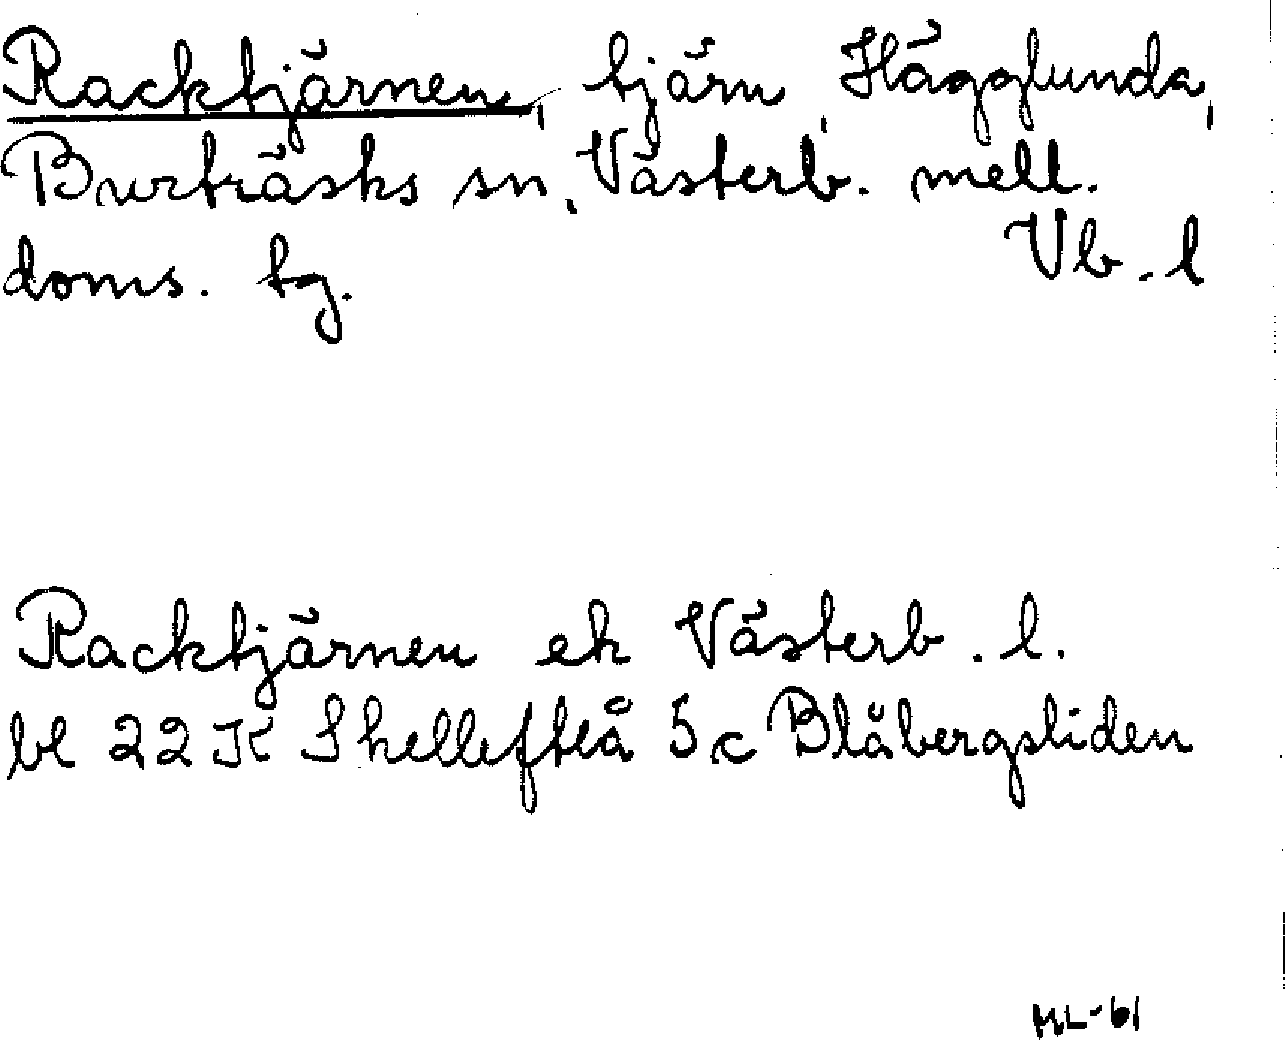 Racktjärnen, tjärn, Hägglunda,
Burträsks sn, Västerb. mell.
doms. tg. Vb. l
Racktjärnen ek Västerb. l.
bl 22 K Skellefteå 5 c Blåbergsliden
ML-61